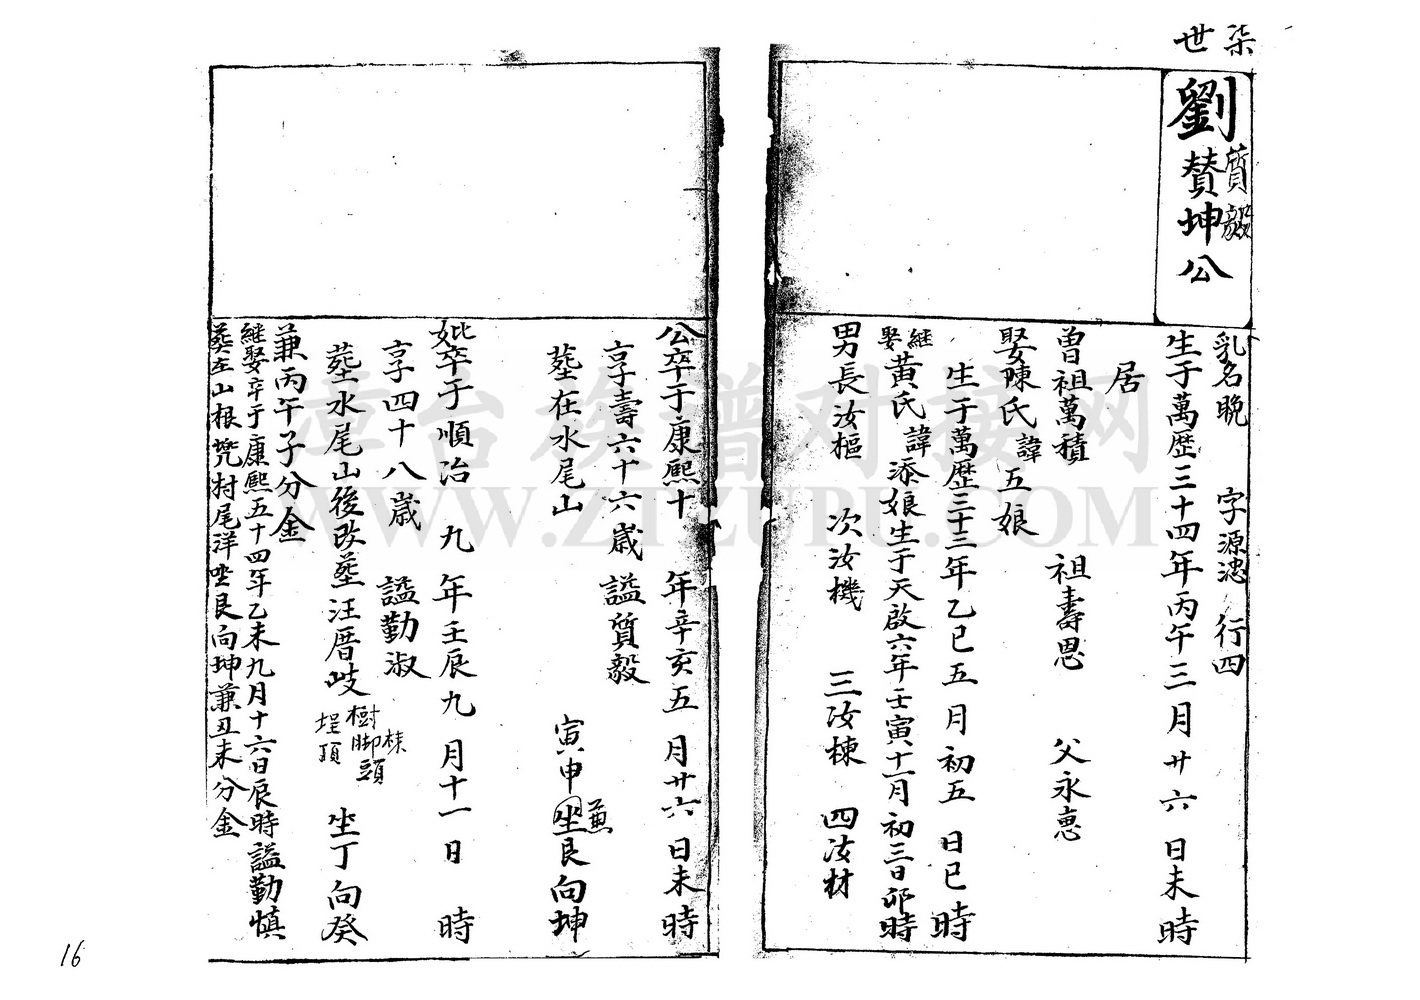 柒世
劉質毅
贊坤公
乳名晚 字源 行四
生于萬歷三十四年丙午三月廿六日未時
居
曾祖萬積 祖壽思 父永惠
娶陳氏諱五娘
生于萬歷三十三年乙巳五月初五日巳時
繼娶黃氏諱添娘生于天啟六年壬寅十一月初三日卯時
男長汝樞 次汝機 三汝棟 四汝材
公卒于康熙十 年辛亥五月廿六日未時
享壽六十六歲 謚質毅
塟在水尾山 寅申兼坐艮向坤
妣卒于順治 九年壬辰九月十一日 時
享四十八歲 謚勤淑
塟水尾山後改塟汪厝岐樹脚 頭埕頂 坐丁向癸
兼丙午子分金
繼娶卒于康熙五十四年乙未九月十六日辰時謚勤慎
塟在山根 村尾洋坐艮向坤兼丑未分金
16
漳台族谱对接网
WWW.ZTZUPU.COM